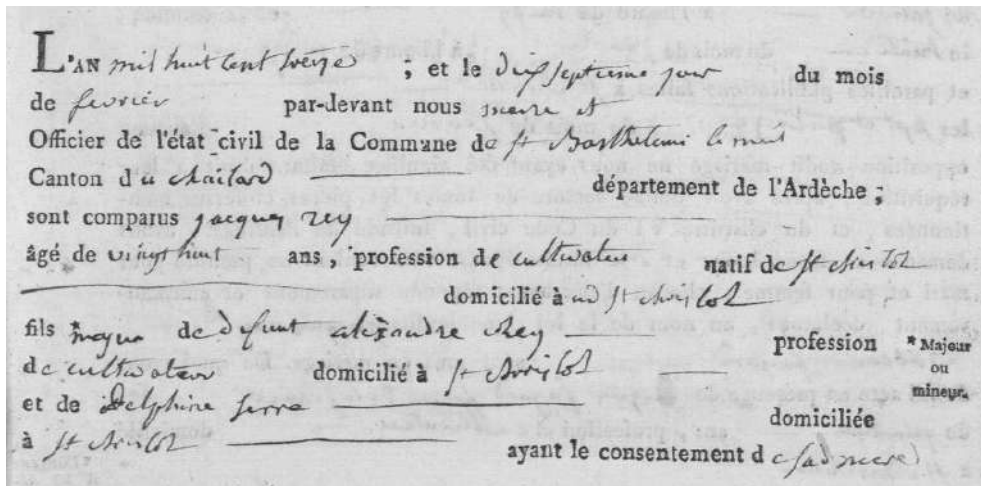 L'AN mil huit cent treize ; et le dix septieme jour du mois
de fevrier par-devant nous maire et
Officier de l'état civil de la Commune de st Barthelemi le meil
Canton du chailard département de l'Ardèche ;
sont comparus jacques rey
âgé de vingt huit ans ; profession de cultivateur natif de st christol
domicilié à st christol
fils majeur de defunt alexandre rey profession
de cultivateur domicilié à st christol
et de Delphine serre domiciliée
à st christol ayant le consentement de sad mere
* Majeur
ou
mineur.